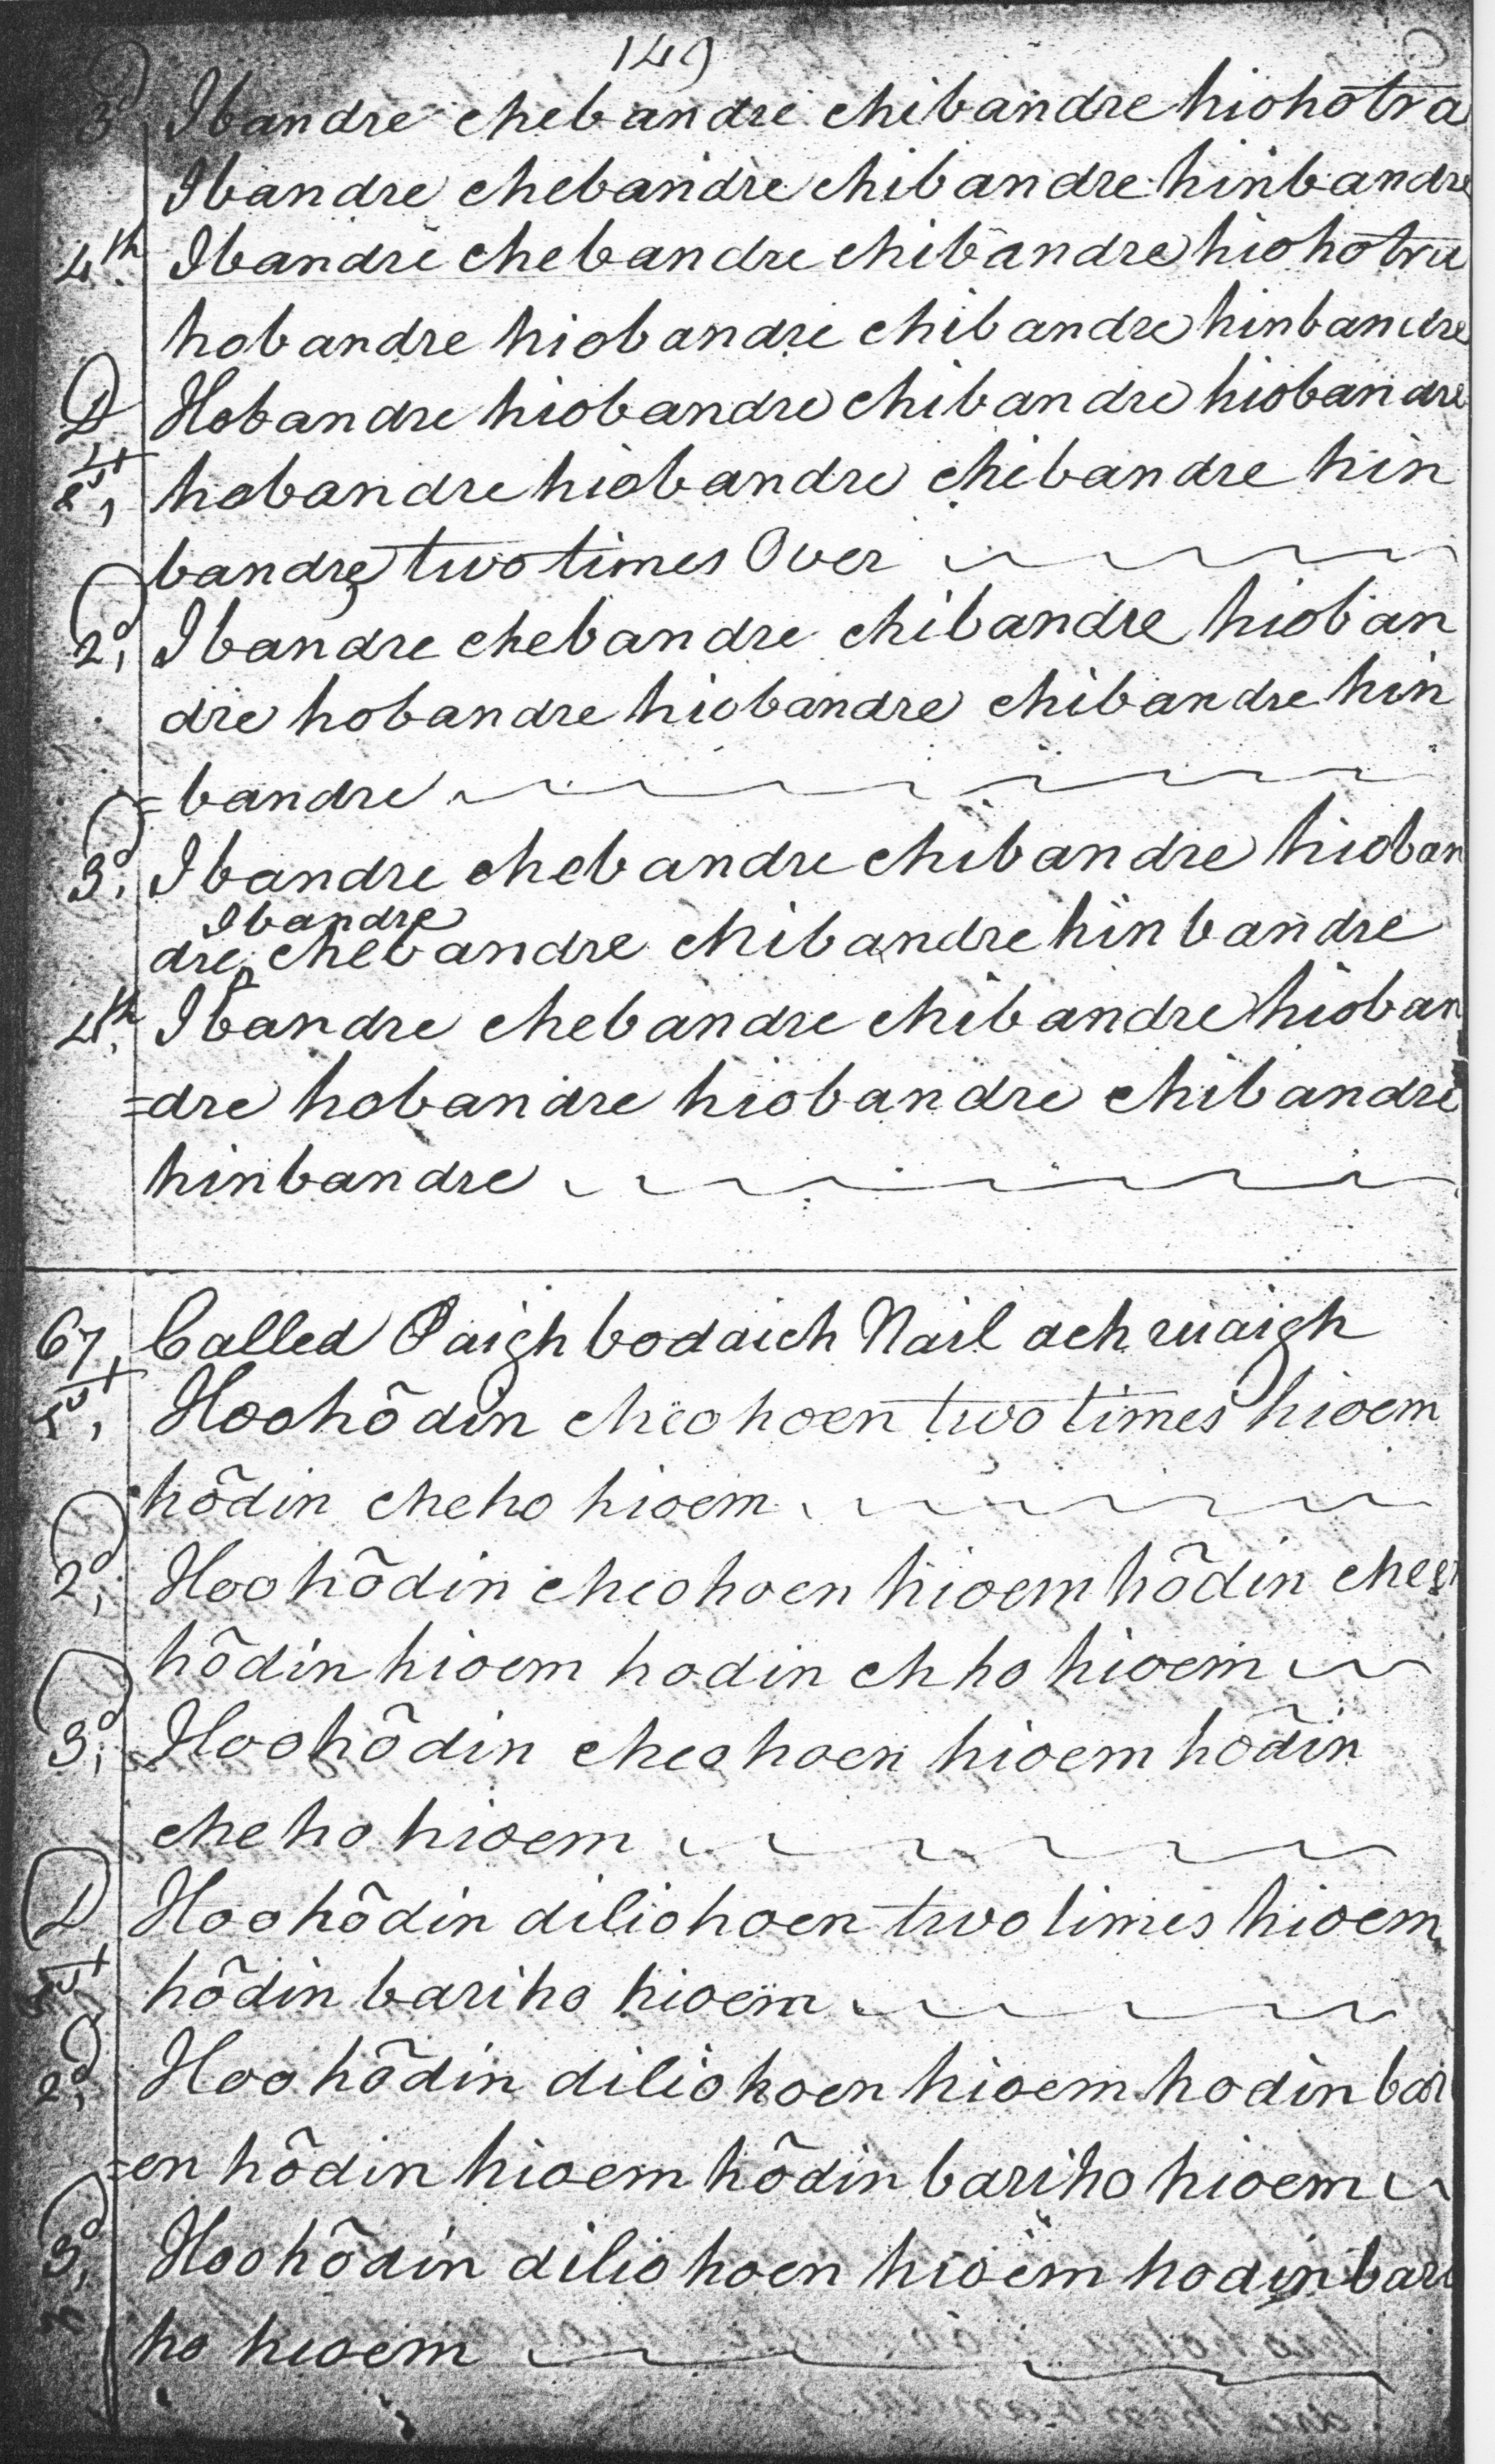 149
3d Ibandre chebandre chibandre hiohotra
Ibandre chebandre chibandre hinbandre
4th. Ibandre chebandre chibandre hiohotra
hobandre hiobandre chibandre hinbandre
D Hobandre hiobandre chibandre hiobandre
1st, hobandre hiobandre chibandre hin
bandre, two times Over
2d, Ibandre chebandre chibandre hioban
dre hobandre hiobandre chibandre hin
=bandre
3d. Ibandre chebandre chibandre hioban
Ibandre
dre ‸ chebandre chibandre hinbandre
4th. Ibandre chebandre chibandre hioban
=dre hobandre hiobandre chibandre
hinbandre
67, Called Paigh bodaich Nail ach ruaigh
1st, Hoohôdin cheohoen two times hioem
hôdin cheho hioem
2d, Hoohôdin cheohoen hioem hôdin cheen
hôdin hioem hodin chho hioem
3d, Hoohôdin cheohoen hioem hôdin
cheho hioem
D Hoohôdin diliohoen two times hioem
1st hôdin bariho hioem
2d, Hoohôdin diliohoen hioem hodin bar
=en hôdin hioem hôdin bariho hioem
3d, Hoohôdin diliohoen hioem hodin bari
ho hioem